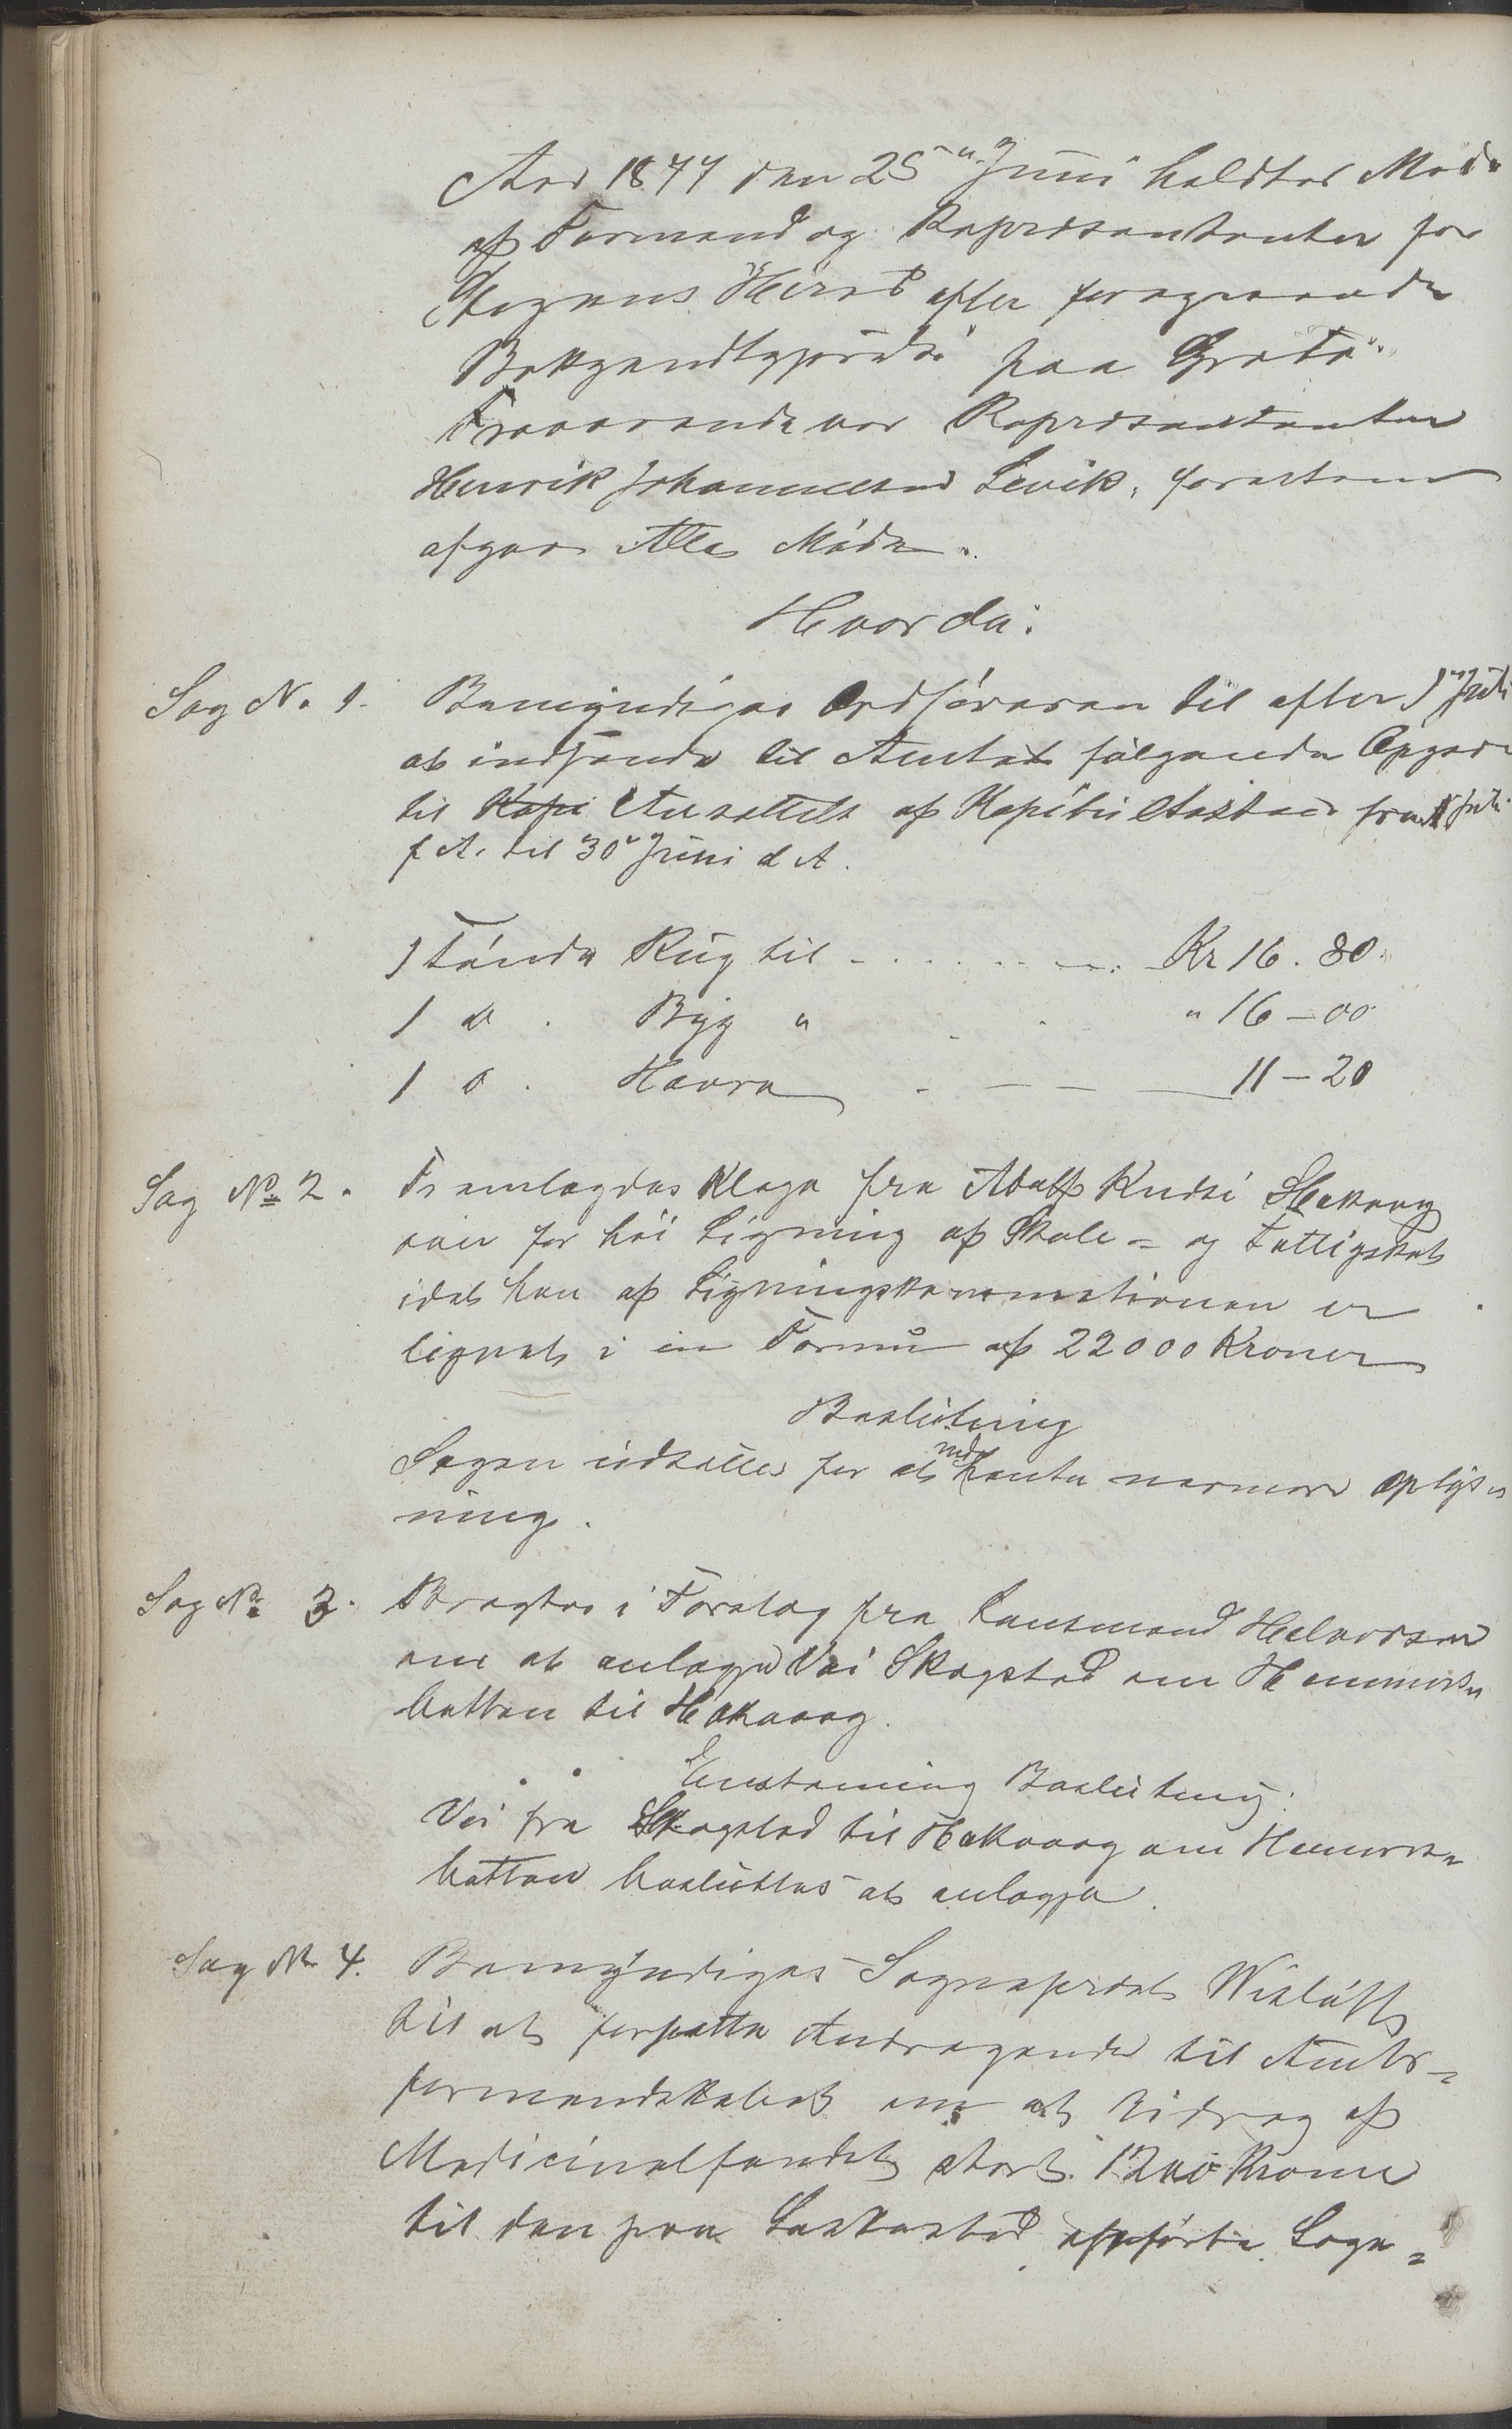 Aar 1877 den 25de Juni holdtes Møde
af Formænd og Repræsentanter for
Stegens Herred efter foregaaende
Bekjendtgjørelse paa Grøtø.
Fraværende var Repræsentanten
Henrik Johannessen Levik, forøvrigt
afgav Alle Møde.
Hvorda:
Sag No. 1. Bemyndiges Ordføreren til efter 1ste Juli
at indsende til Amtet følgende Opgave
til Kapi Ansættelse af Kapiteltaxten fra 1 Juli
f A. til 30te Juni d A.
1 Tønde Rug til - . . . . . . Kr 16. 80.
1 do. Byg " " 16 - 00
1 do. Havre - - - 11 - 20
Sag No 2. Fremlagdes Klage fra Adolf Kudsi Hakvaag
over for høi Ligning af Skole- og Fattigskat
idet han af Ligningskommissionen er
lignet i en Formue af 22000 Kroner
Beslutning
Sagen udsættes for at indhente nærmere Oplys-
ning.
Sag No 3. Bragtes i Forslag fra Lensmand Halvorsen
om at anlægge Vei Skogstad om Hammers-
batten til Hakvaag.
Enstemmig Beslutning:
Vei fra Skogstad til Hakvaag om Hammers-
batten besluttes at anlægge.
Sag No 4. Bemyndiges Sogneprest Wisløff
til at forfatte Andragende til Amts-
formandskabet om et Bidrag af
Medicinalfondet stort 1200 Kroner
til den paa Laskestad opførte Læge-